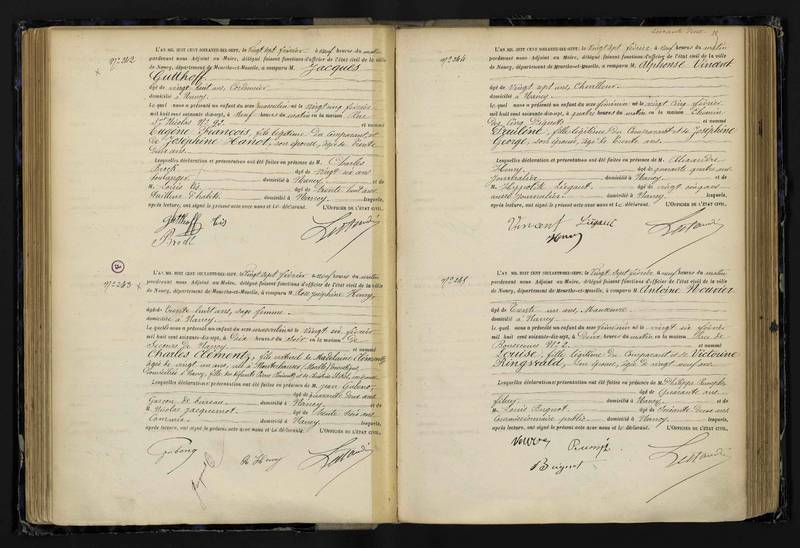 N° 242
L'AN MIL HUIT CENT SOIXANTE-DIX-SEPT, le vingt sept février à neuf heures du matin
pardevant nous Adjoint au Maire, délégué faisant fonctions d'officier de l'état civil de la ville
de Nancy, département de Meurthe-et-Moselle, a comparu M. Jacques
Gutthoff
âgé de vingt huit ans, Cordonnier
domicilié à Nancy
Lequel nous a présenté un enfant du sexe masculin né le vingt cinq février
mil huit cent soixante-dix-sept, à neuf heures du matin en la maison Rue
St Nicolas N° 92 et nommé
Eugène François, fils légitime du Comparant et
de Joséphine Hanot, son épouse, âgée de trente
deux ans
Lesquelles déclaration et présentation ont été faites en présence de M. Charles
Brodt âgé de vingt six ans
boulanger domicilié à Nancy et de
M. Louis Lis âgé de trente huit ans
Tailleur d'habits domicilié à Nancy lesquels,
après lecture, ont signé le présent acte avec nous et le déclarant. L'OFFICIER DE L'ÉTAT CIVIL,
Gutthoff Lis
Brodt
N° 243
L'AN MIL HUIT CENT SOIXANTE-DIX-SEPT, le vingt sept février à neuf heures du matin
pardevant nous Adjoint au Maire, délégué faisant fonctions d'officier de l'état civil de la ville
de Nancy, département de Meurthe-et-Moselle, a comparu M. Rose Joséphine Henry
âgée de trente huit ans, sage femme
domiciliée à Nancy
Laquelle nous a présenté un enfant du sexe masculin né le vingt six février
mil huit cent soixante-dix-sept, à Deux heures du soir en la maison De
Secours de Nancy et nommé
Charles Clément, fils naturel de Madelaine Clément
âgée de vingt ans, née à
Lesquelles déclaration et présentation ont été faites en présence de M. Jean
âgé de soixante deux ans
Garçon de bureau domicilié à Nancy et de
M. Nicolas Jacqueminot âgé de trente trois ans
Commis domicilié à Nancy lesquels,
après lecture, ont signé le présent acte avec nous et la déclarante. L'OFFICIER DE L'ÉTAT CIVIL,
R Henry
soixante deux
N° 244
L'AN MIL HUIT CENT SOIXANTE-DIX-SEPT, le vingt sept février à neuf heures du matin
pardevant nous Adjoint au Maire, délégué faisant fonctions d'officier de l'état civil de la ville
de Nancy, département de Meurthe-et-Moselle, a comparu M. Alphonse Vincent
âgé de vingt sept ans,
domicilié à Nancy
Lequel nous a présenté un enfant du sexe féminin né le vingt cinq février
mil huit cent soixante-dix-sept, à quatre heures du matin en la maison Chemin
des cinq Piquets et nommé
Pauline, fille légitime du Comparant et de Joséphine
George, son épouse, âgée de trente ans
Lesquelles déclaration et présentation ont été faites en présence de M. Alexandre
Henry âgé de quarante quatre ans
Journalier domicilié à Nancy et de
M. Hippolyte Liégaut âgé de vingt cinq ans
aussi Journalier domicilié à Nancy lesquels,
après lecture, ont signé le présent acte avec nous et le déclarant. L'OFFICIER DE L'ÉTAT CIVIL,
Vincent Liégaut
Henry
N° 245
L'AN MIL HUIT CENT SOIXANTE-DIX-SEPT, le vingt sept février à neuf heures du matin
pardevant nous Adjoint au Maire, délégué faisant fonctions d'officier de l'état civil de la ville
de Nancy, département de Meurthe-et-Moselle, a comparu M. Antoine Nouvier
âgé de trente un ans, Manœuvre
domicilié à Nancy
Lequel nous a présenté un enfant du sexe féminin né le vingt six février
mil huit cent soixante-dix-sept, à Deux heures du matin en la maison Rue de
Bonsecours N° 2 et nommé
Louise, fille légitime du Comparant et de Victorine
Ringsvald, son épouse, âgée de vingt neuf ans
Lesquelles déclaration et présentation ont été faites en présence de M. Philippe
âgé de quarante ans
domicilié à Nancy et de
M. Louis Buguet âgé de soixante deux ans
Commissionnaire public domicilié à Nancy lesquels,
après lecture, ont signé le présent acte avec nous et le déclarant. L'OFFICIER DE L'ÉTAT CIVIL,
Buguet